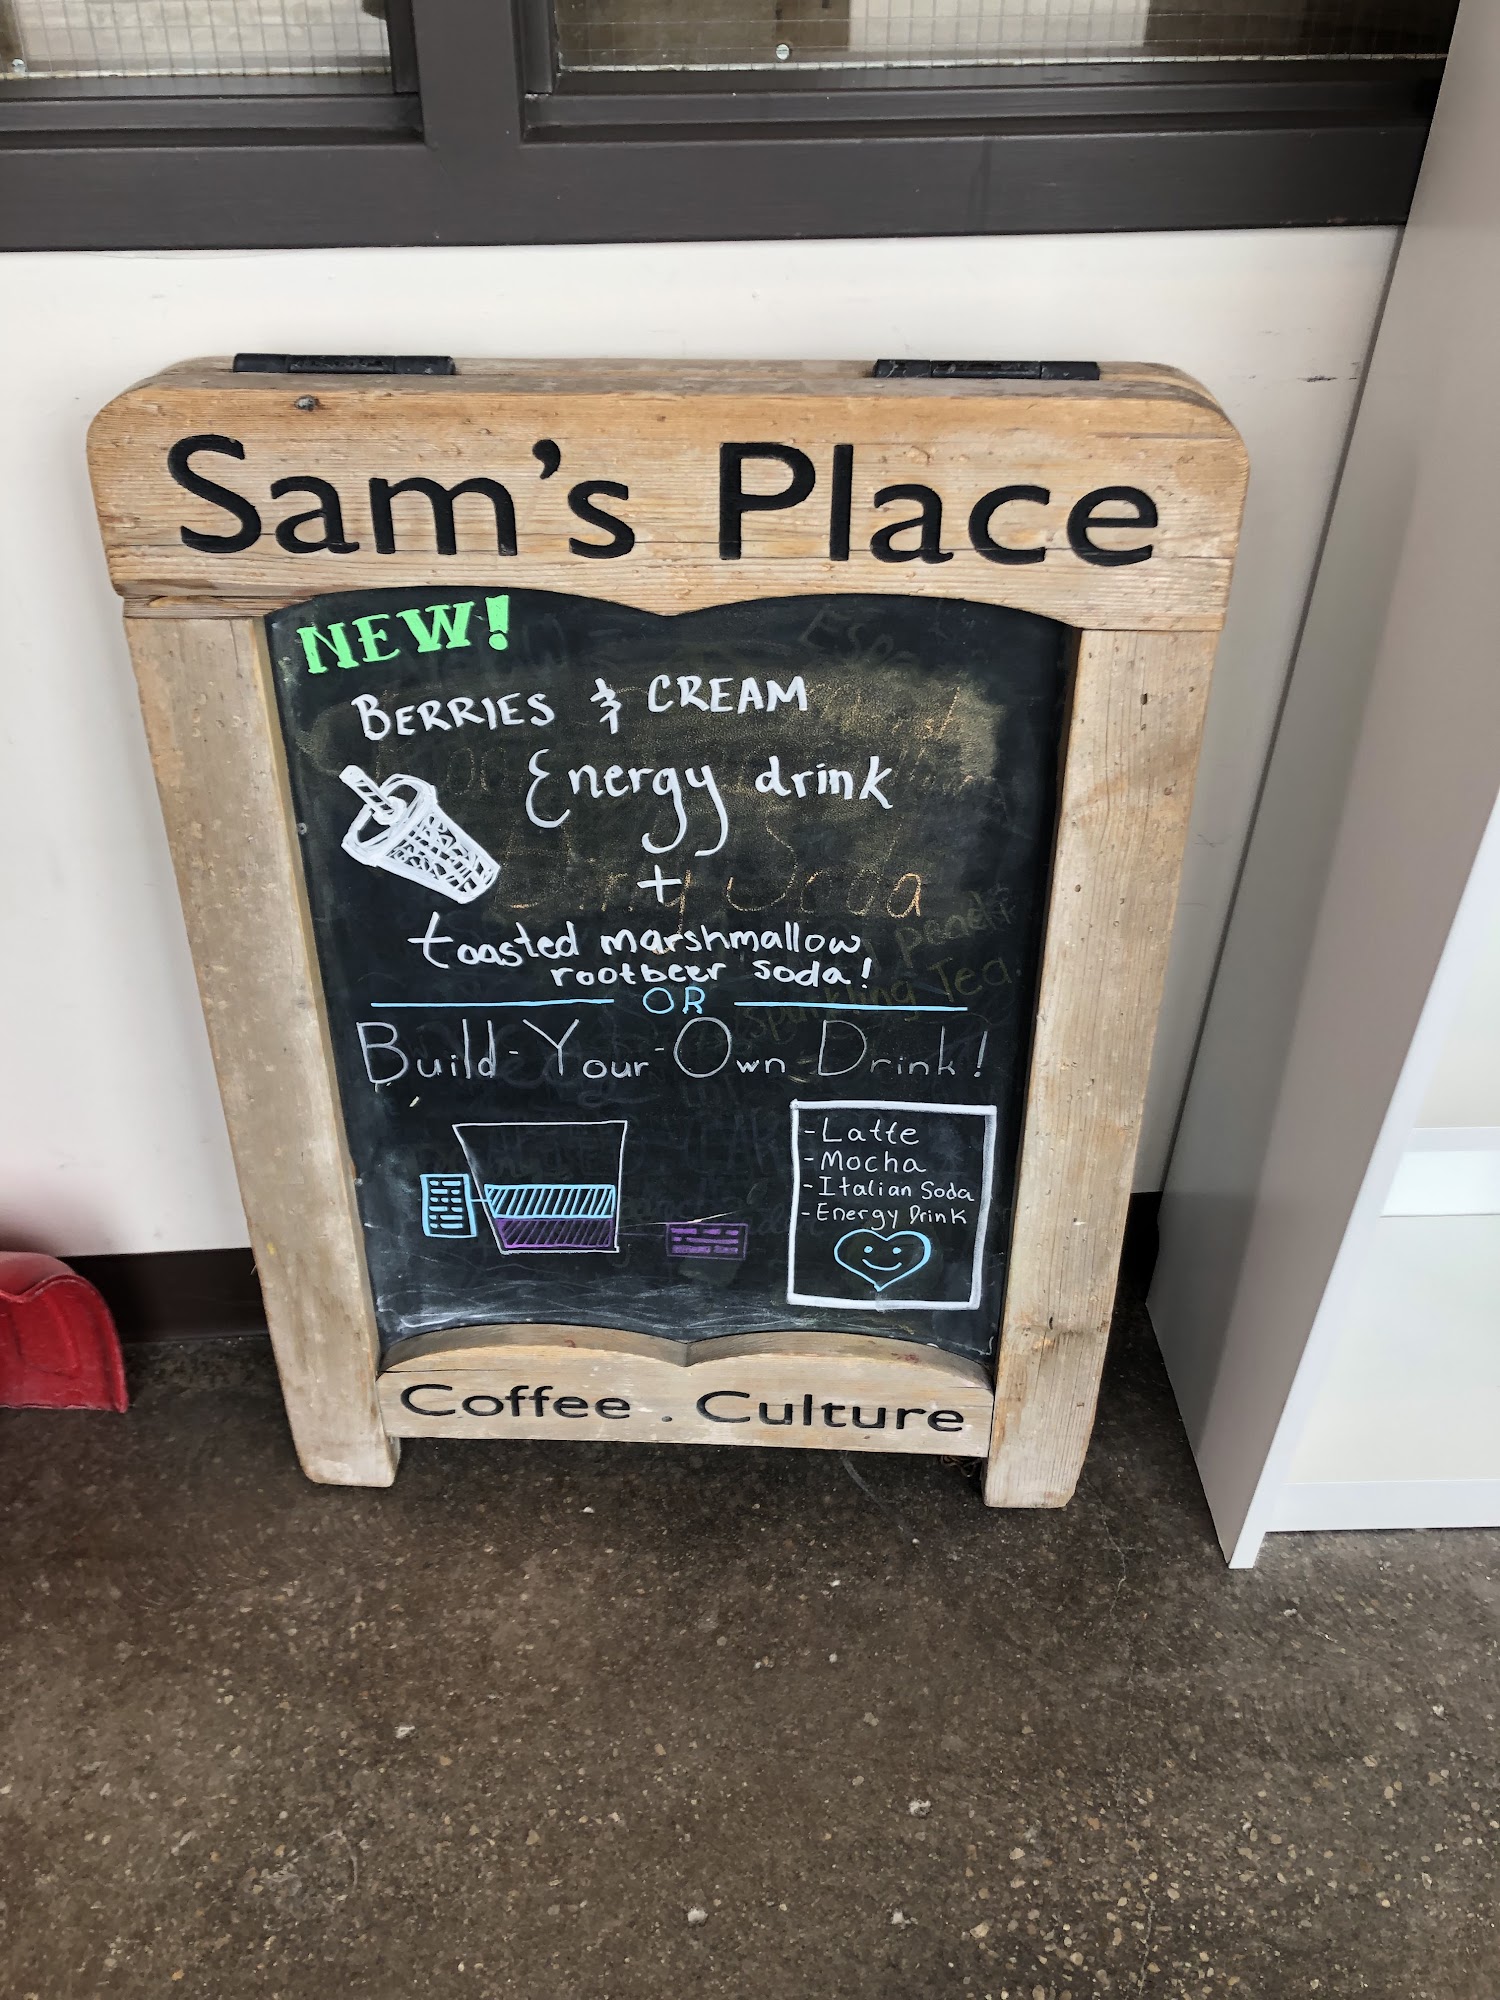 Sam's Place
NEW!
BERRIES & CREAM
Energy drink
+
Soda
toasted marshmallow
rootbeer soda!
Tea.
OR
Build-Your-Own Drink!
- Latte
- Mocha
- Italian Soda
- Energy Drink
Coffee . Culture